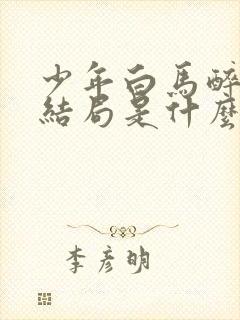 少年白馬醉
結局是什麼
李彥明